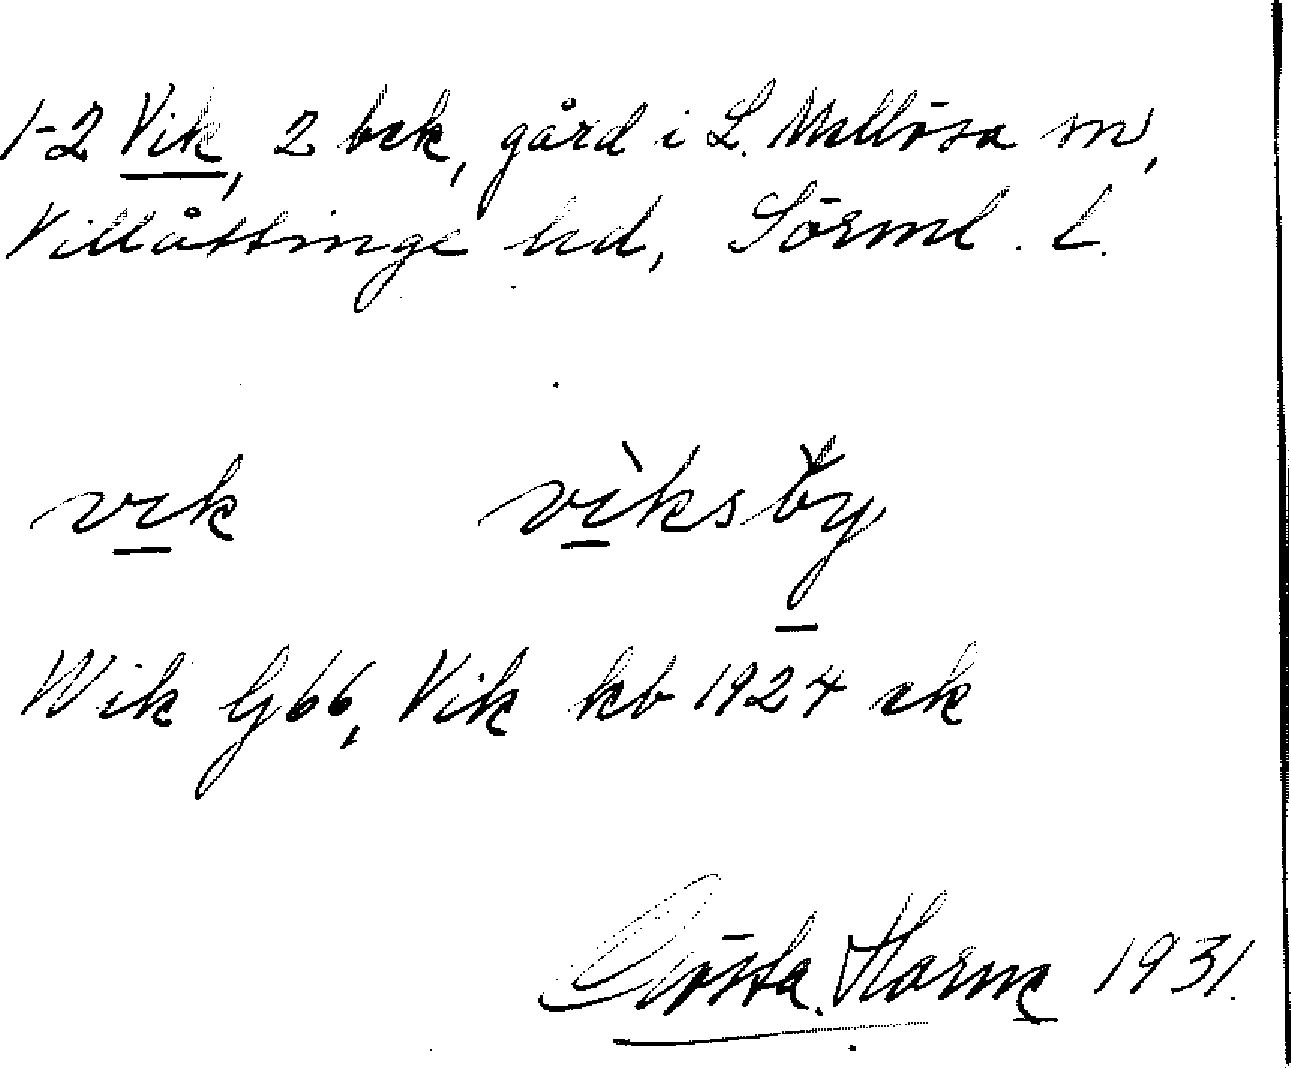 1-2 Vik, 2 bek, gård i L. Mellösa sn,
Villåttinge hd, Sörml. L.
vik viksby
Wik Gj66, Vik kb 1924 ek
Gösta Harne 1931.